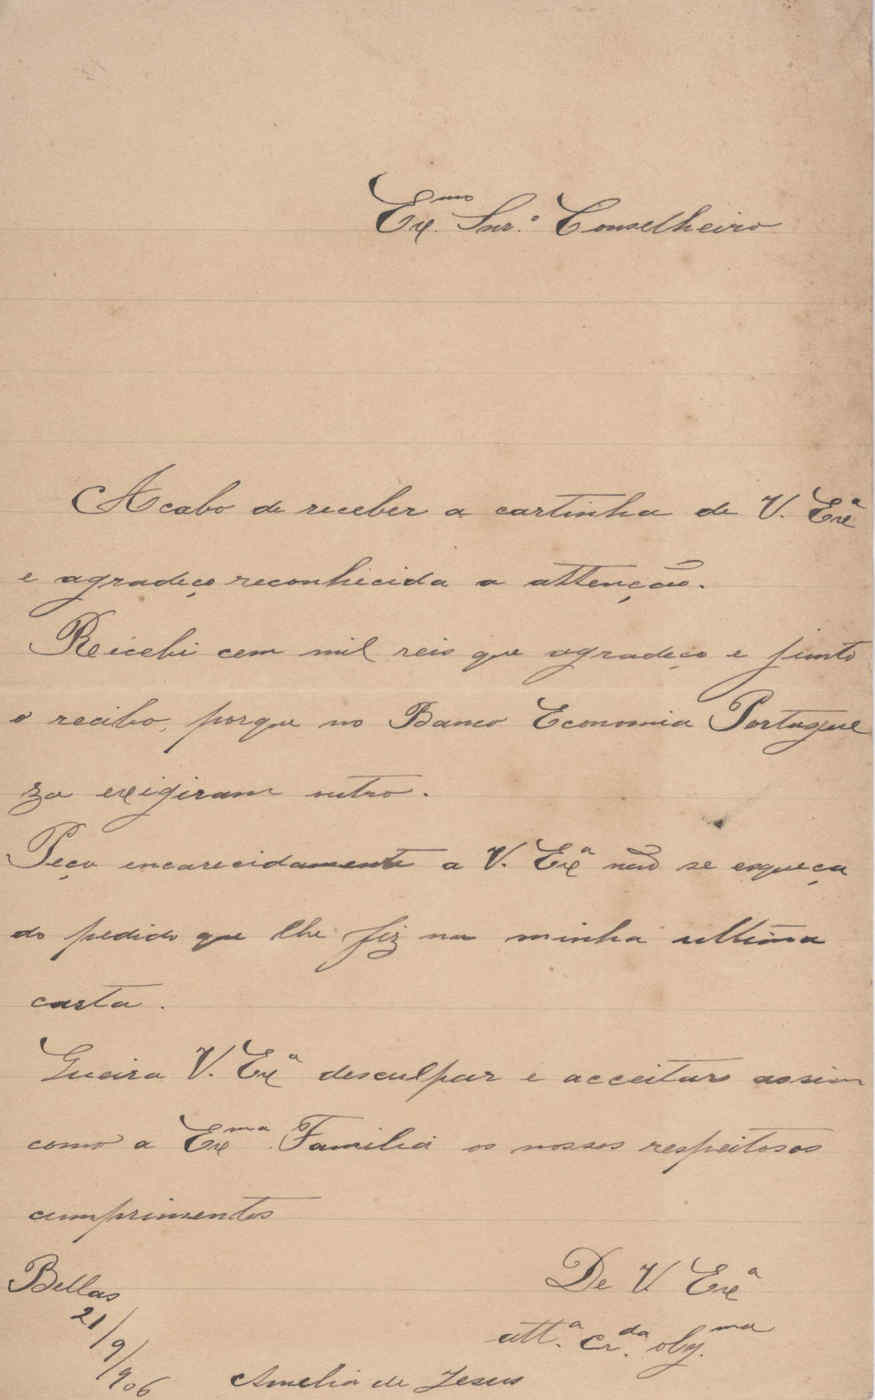 Ex.mo Snr.º Conselheiro
Acabo de receber a cartinha de V. Exª
e agradeço reconhecida a attenção.
Recebi cem mil reis que agradeço e junto
o recibo, porque no Banco Economia Portugue
za exigiram outro.
Peço encarecidamente a V. Exª não se esqueça
do pedido que lhe fiz na minha ultima
carta.
Queira V. Exª desculpar e acceitar assim
como a Exma. Familia os nossos respeitosos
cumprimentos
De V. Exª
Bellas
21/9/906
att.ª cr.da obg.ma
Amelia de Jesus